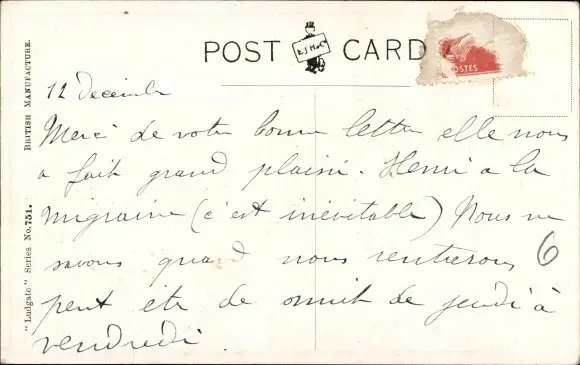 POST CARD
E.J.H&C
OSTES
BRITISH MANUFACTURE.
"Ludgate" Series No. 751.
12 Decembre
Merci de votre bonne lettre elle nous
a fait grand plaisir. Henri a la
migraine (c'est inévitable) Nous ne
savons quand nous rentrerons
peut être de nuit de jeudi à
vendredi.
6